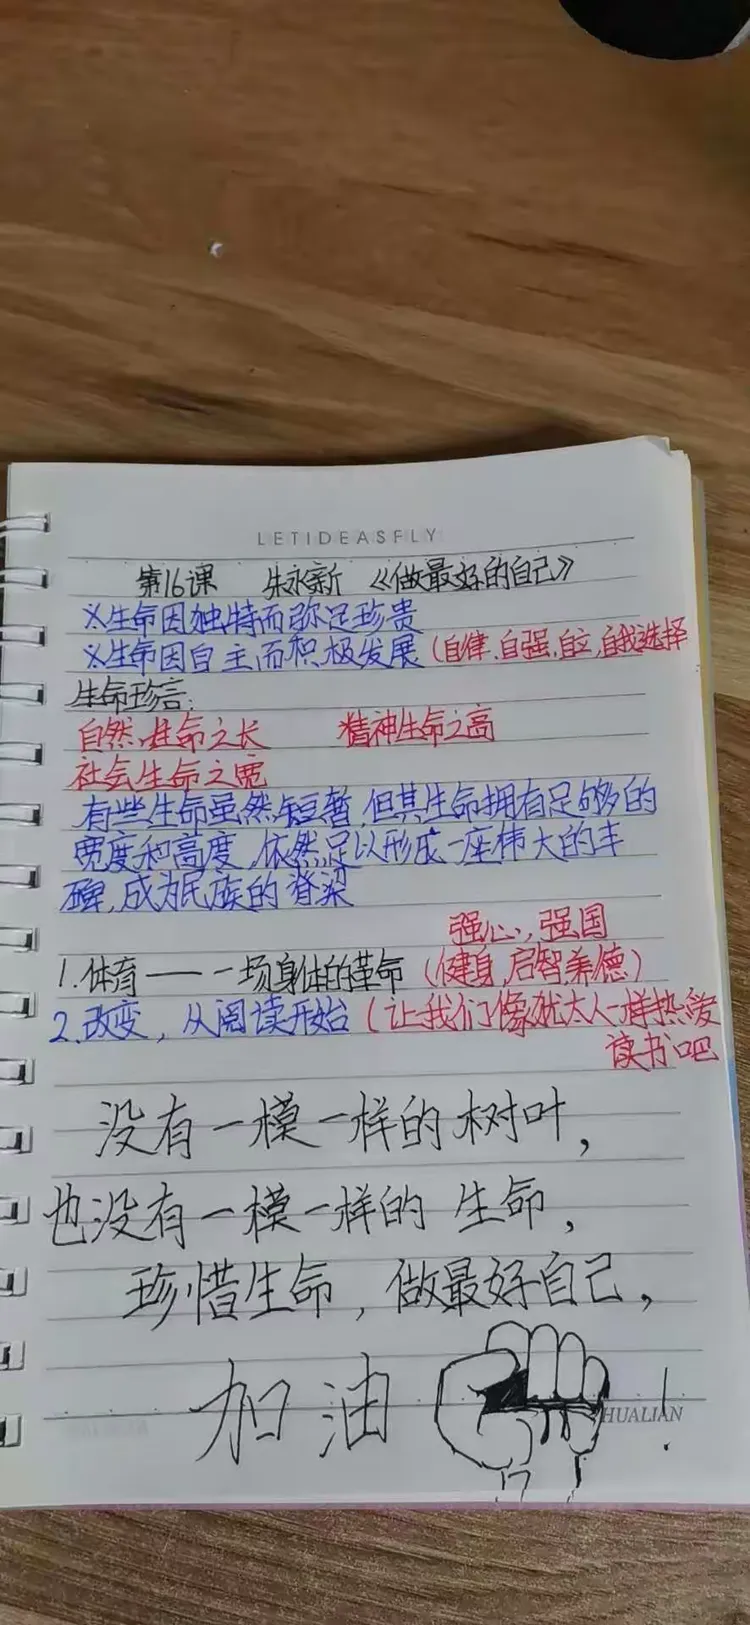 LETIDEASFLY
第16课 朱永新 《做最好的自己》
※生命因独特而弥足珍贵
※生命因自主而积极发展 (自律、自强、自立、自我选择
生命珍言:
自然生命之长 精神生命之高
社会生命之宽
有些生命虽然短暂,但其生命拥有足够的
宽度和高度,依然足以形成一座伟大的丰
碑,成为民族的脊梁
强心,强国
1.体育——一场身体的革命 (健身,启智,养德)
2.改变,从阅读开始 (让我们像犹太人一样热爱
读书吧
没有一模一样的树叶,
也没有一模一样的生命,
珍惜生命,做最好自己,
加油!
HUALIAN